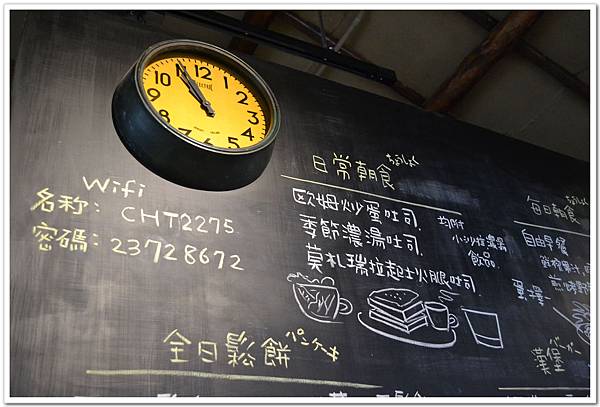 12
11
10
9
8
7
6
5
4
3
2
1
Wifi
名称: CHT2275
密碼: 23728672
日常朝食
歐姆炒蛋吐司.
季節濃湯吐司.
莫札瑞拉起士火腿吐司.
均附
小沙拉濃湯
飲品.
每日朝食
自由早餐
全日鬆餅 パンケーキ